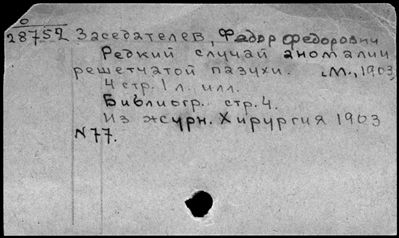 28752 Заседателев, Фадор Федорович
Редкий случай аномалии
решетчатой пазухи. М., 1903,
4 стр. 1 л. илл.
Библиогр. стр. 4.
Из журн. Хирургия 1903
N 77.